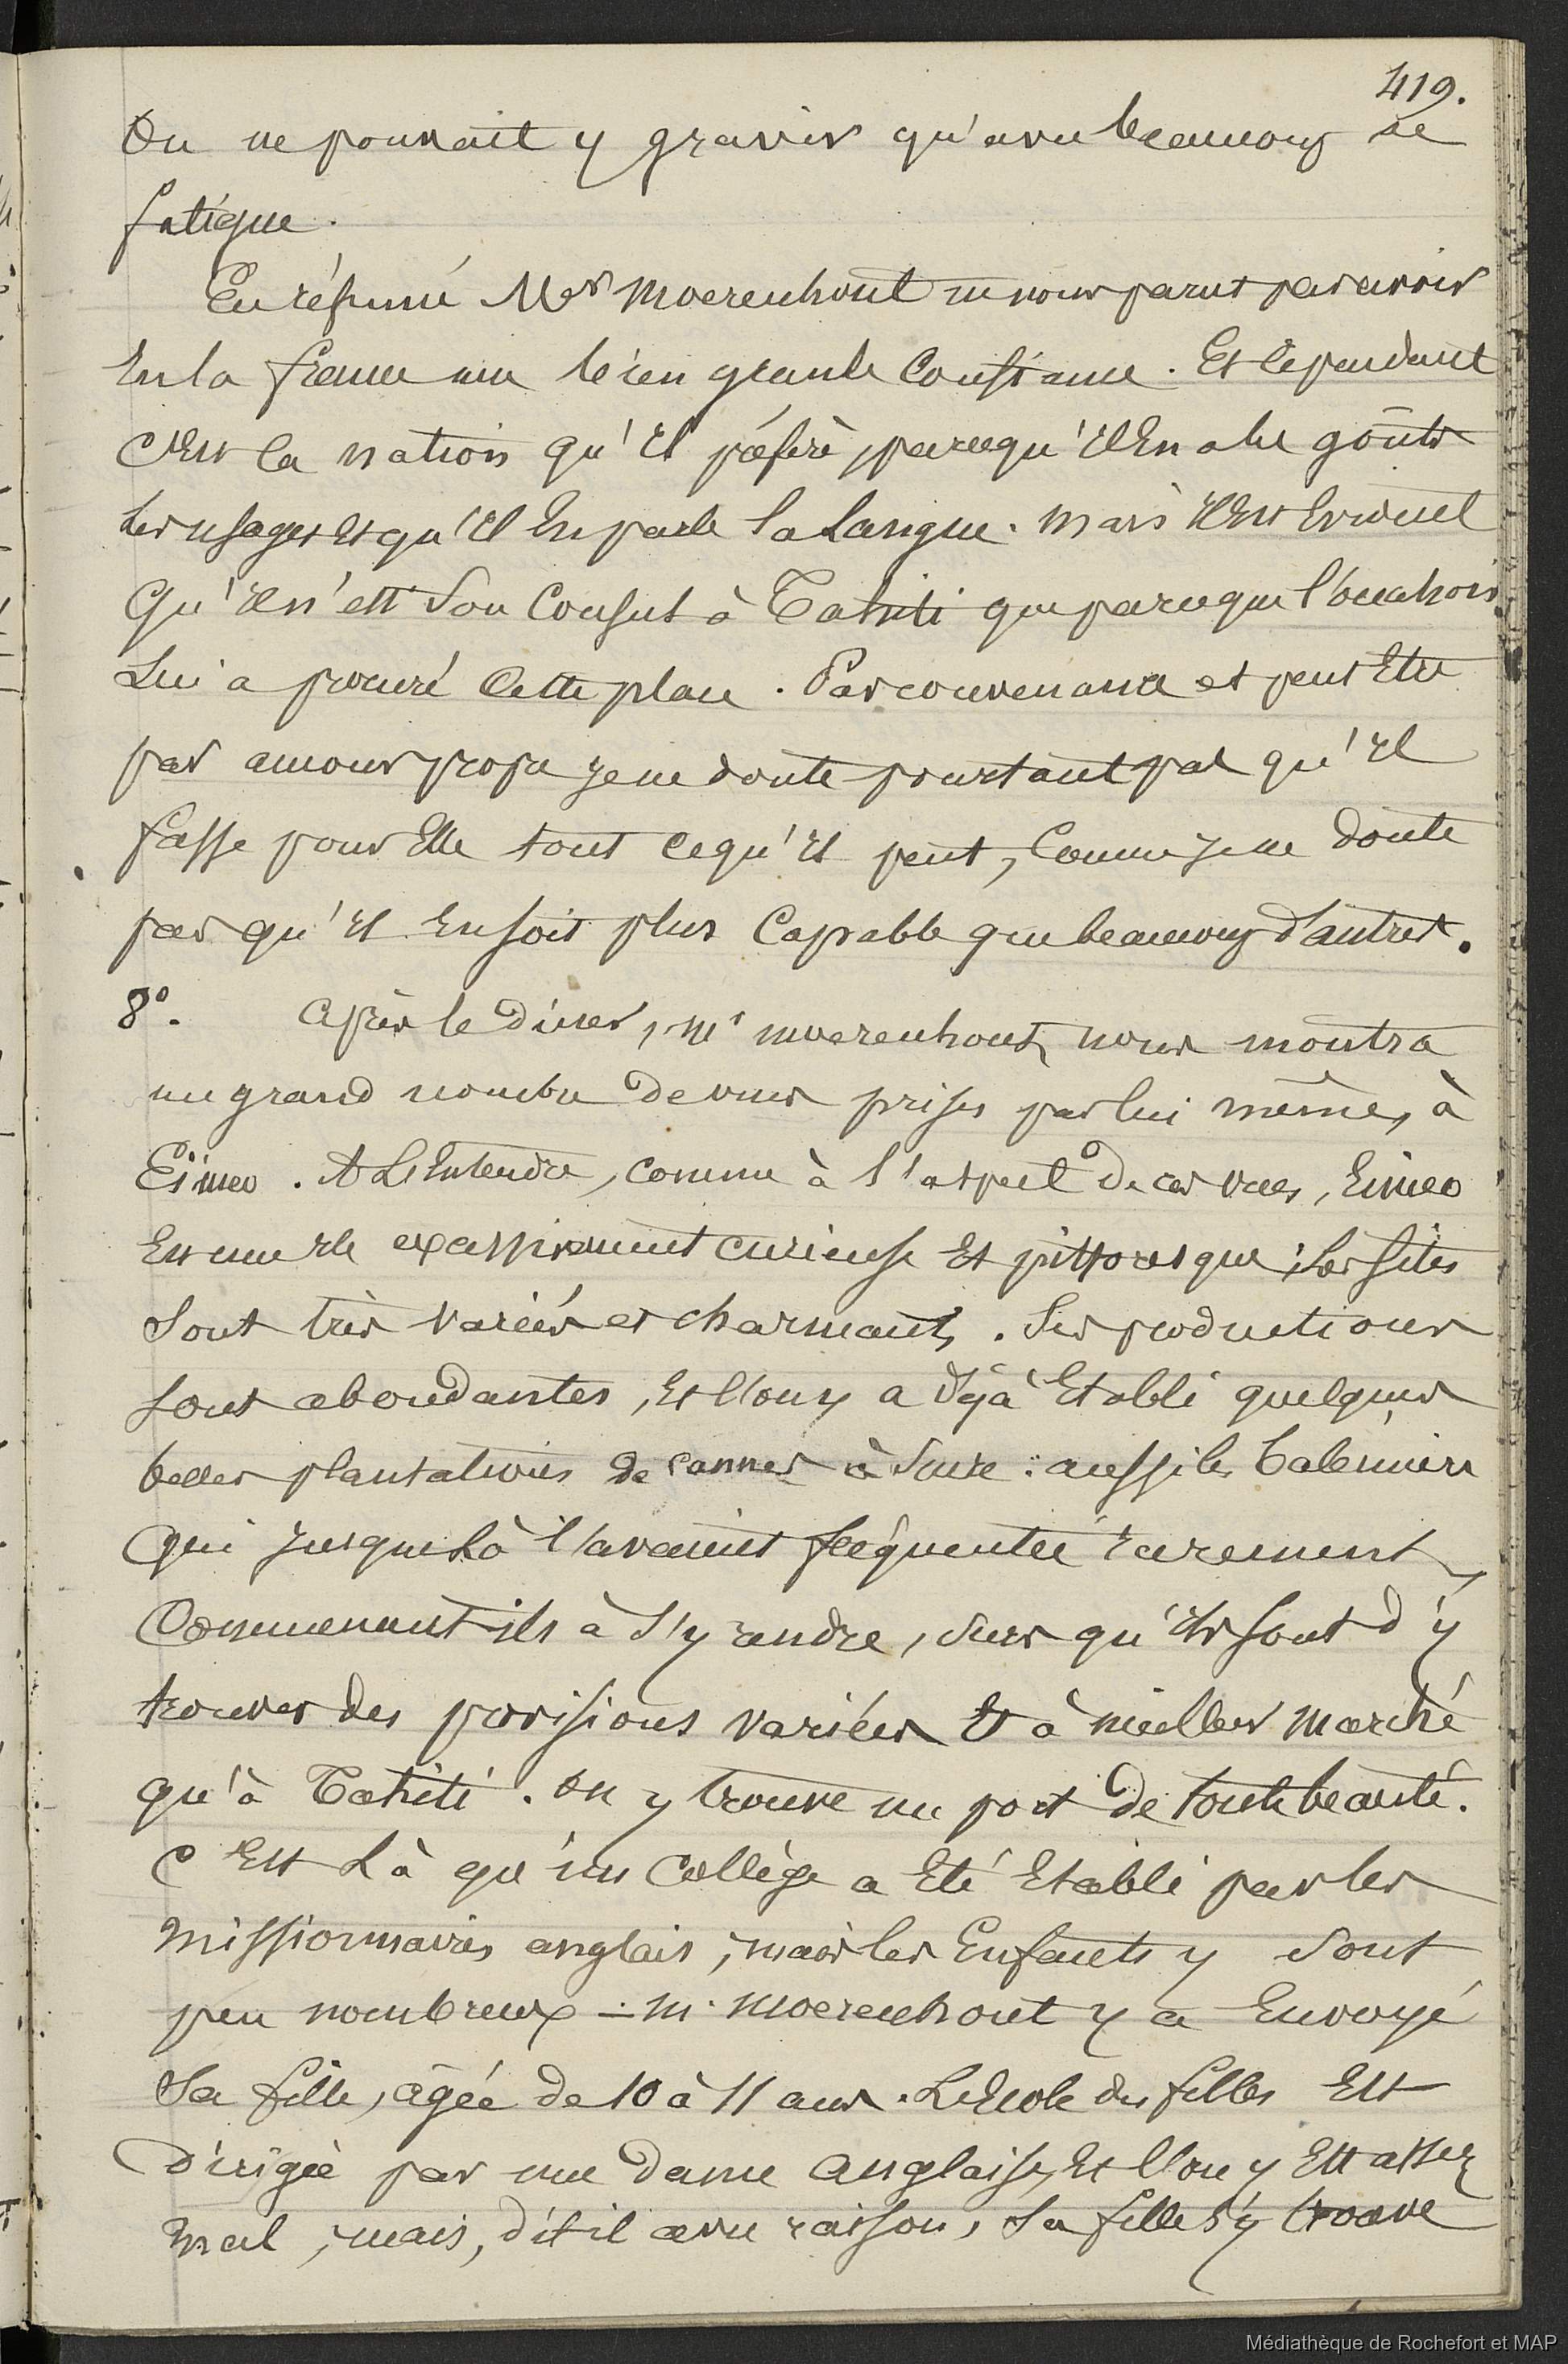 419.
On ne pouvait y gravir qu'avec beaucoup de
fatigue.
En résumé Mr Moerenhout ne nous parut pas avoir
En la france une bien grande Confiance. Et Cependant
C'Est la nation qu'il préfère, parcequ'il En a les goûts
les usages Et qu'il En parle la Langue. Mais il Est Evident
Qu'il n'est Son Consul à Tahiti que parceque l'on a
Lui a procuré Cette place. Par convenance et peut Etre
par amour propre je ne doute pourtant pas qu'il
fasse pour Elle tout ce qu'il peut, Comme je ne doute
pas qu'il En soit plus Capable que beaucoup d'autres.
8°. Après le Diner, Mr Moerenhout nous montra
un grand nombre de vues prises par lui même, à
Eïmeo. A L'Entendre, comme à l'aspect de ces vues, Eimeo
Est une Ile excessivement curieuse Et pittoresque ; les Sites
Sont très variés et charmants. Ses productions
sont abondantes, Et l'on y a déjà Etabli quelques
belles plantations de Cannes à Sucre : aussi les baleiniers
Qui jusque Là l'avaient fréquentée rarement,
Commencent-ils à s'y rendre, Surs qu'ils sont d'y
trouver des provisions variées Et à meilleur marché
qu'à Tahiti. On y trouve un port de toute beauté.
C'Est Là qu'un Collège a Eté Etabli par les
Missionnaires anglais ; mais les Enfants y Sont
peu nombreux - M. Moerenhout y a Envoyé
Sa fille, âgée de 10 à 11 ans. L'Ecole des filles Est
Dirigée par une Dame Anglaise, Et l'on y Est assez
mal ; mais, dit-il avec raison, Sa fille s'y trouve
Médiathèque de Rochefort et MAP